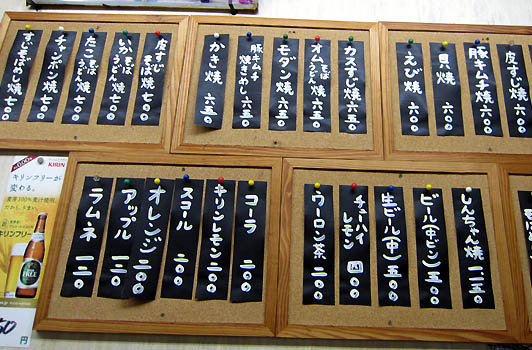 皮すじそば焼 七〇〇
いかそばうどん焼 七〇〇
たこそばうどん焼 七〇〇
チャンポン焼 七〇〇
すじそばめし焼 七〇〇
カスすじ焼 六五〇
オムそば焼 六五〇
モダン焼 六五〇
豚キムチ焼きめし 六五〇
かき焼 六五〇
豚キムチ焼 六〇〇
貝焼 六〇〇
えび焼 六〇〇
しんちゃん焼 一一五〇
ビル(中ビン) 五〇〇
生ビル(中) 五〇〇
チューハイ レモン
ウーロン茶 二〇〇
コーラ 二〇〇
キリンレモン 二〇〇
スコール 二〇〇
オレンジ 二〇〇
アップル 一二〇
ラムネ 一二〇
KIRIN
キリンフリーが
変わる。
麦芽100%麦汁使用。
キリンフリー
FREE
円